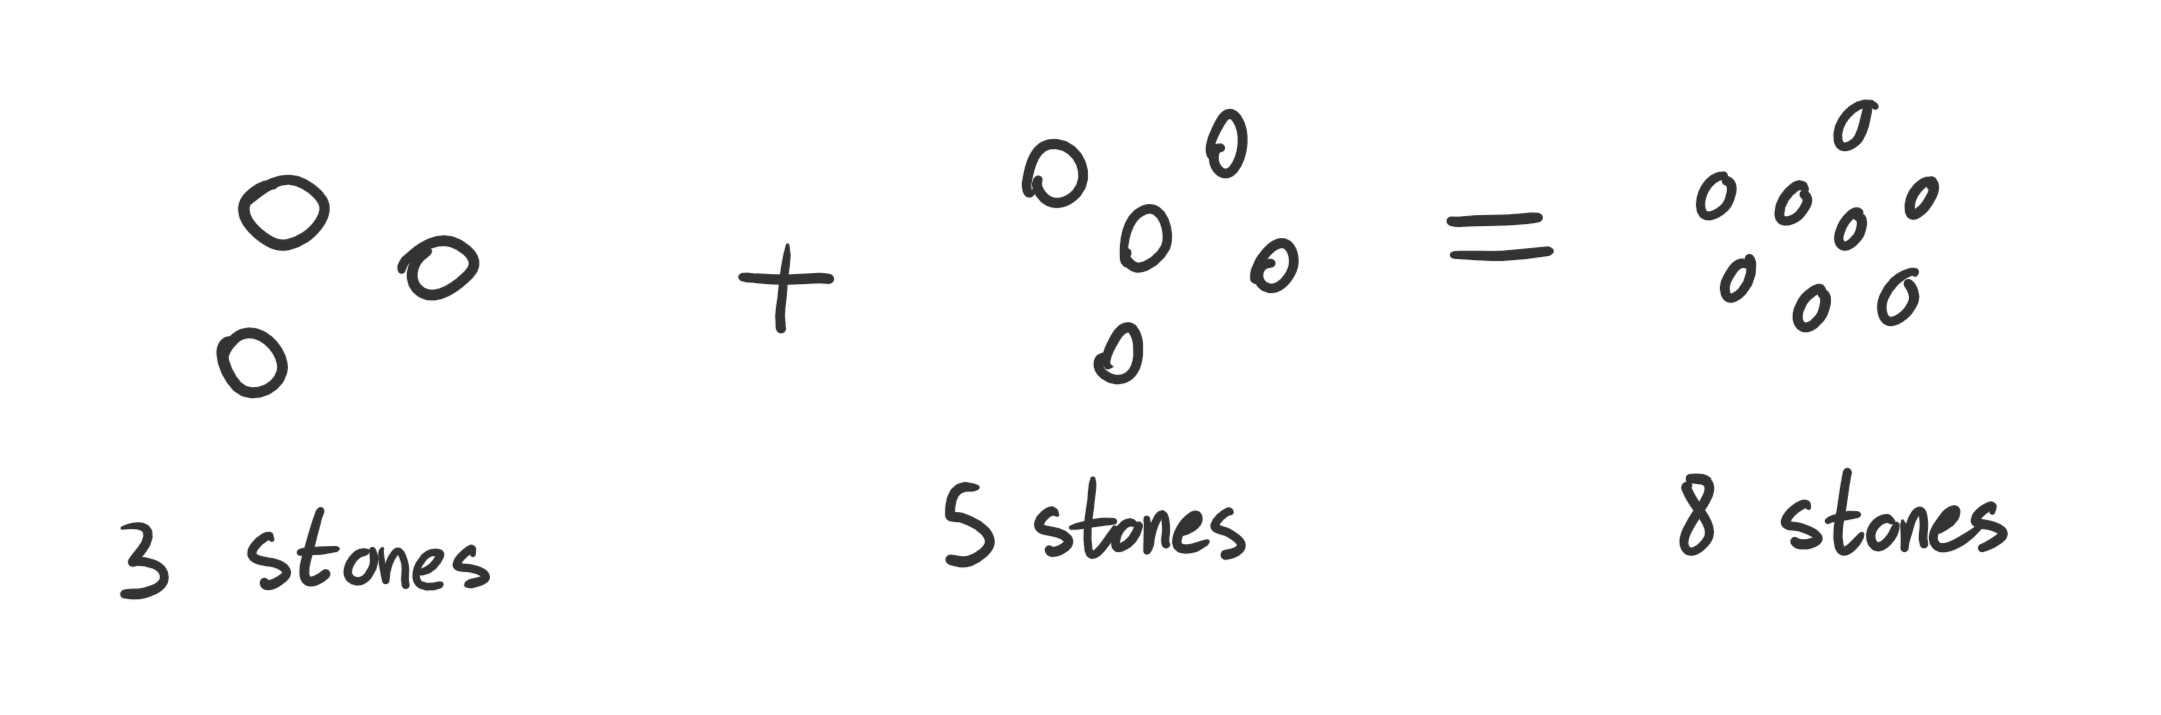 + =
3 stones 5 stones 8 stones